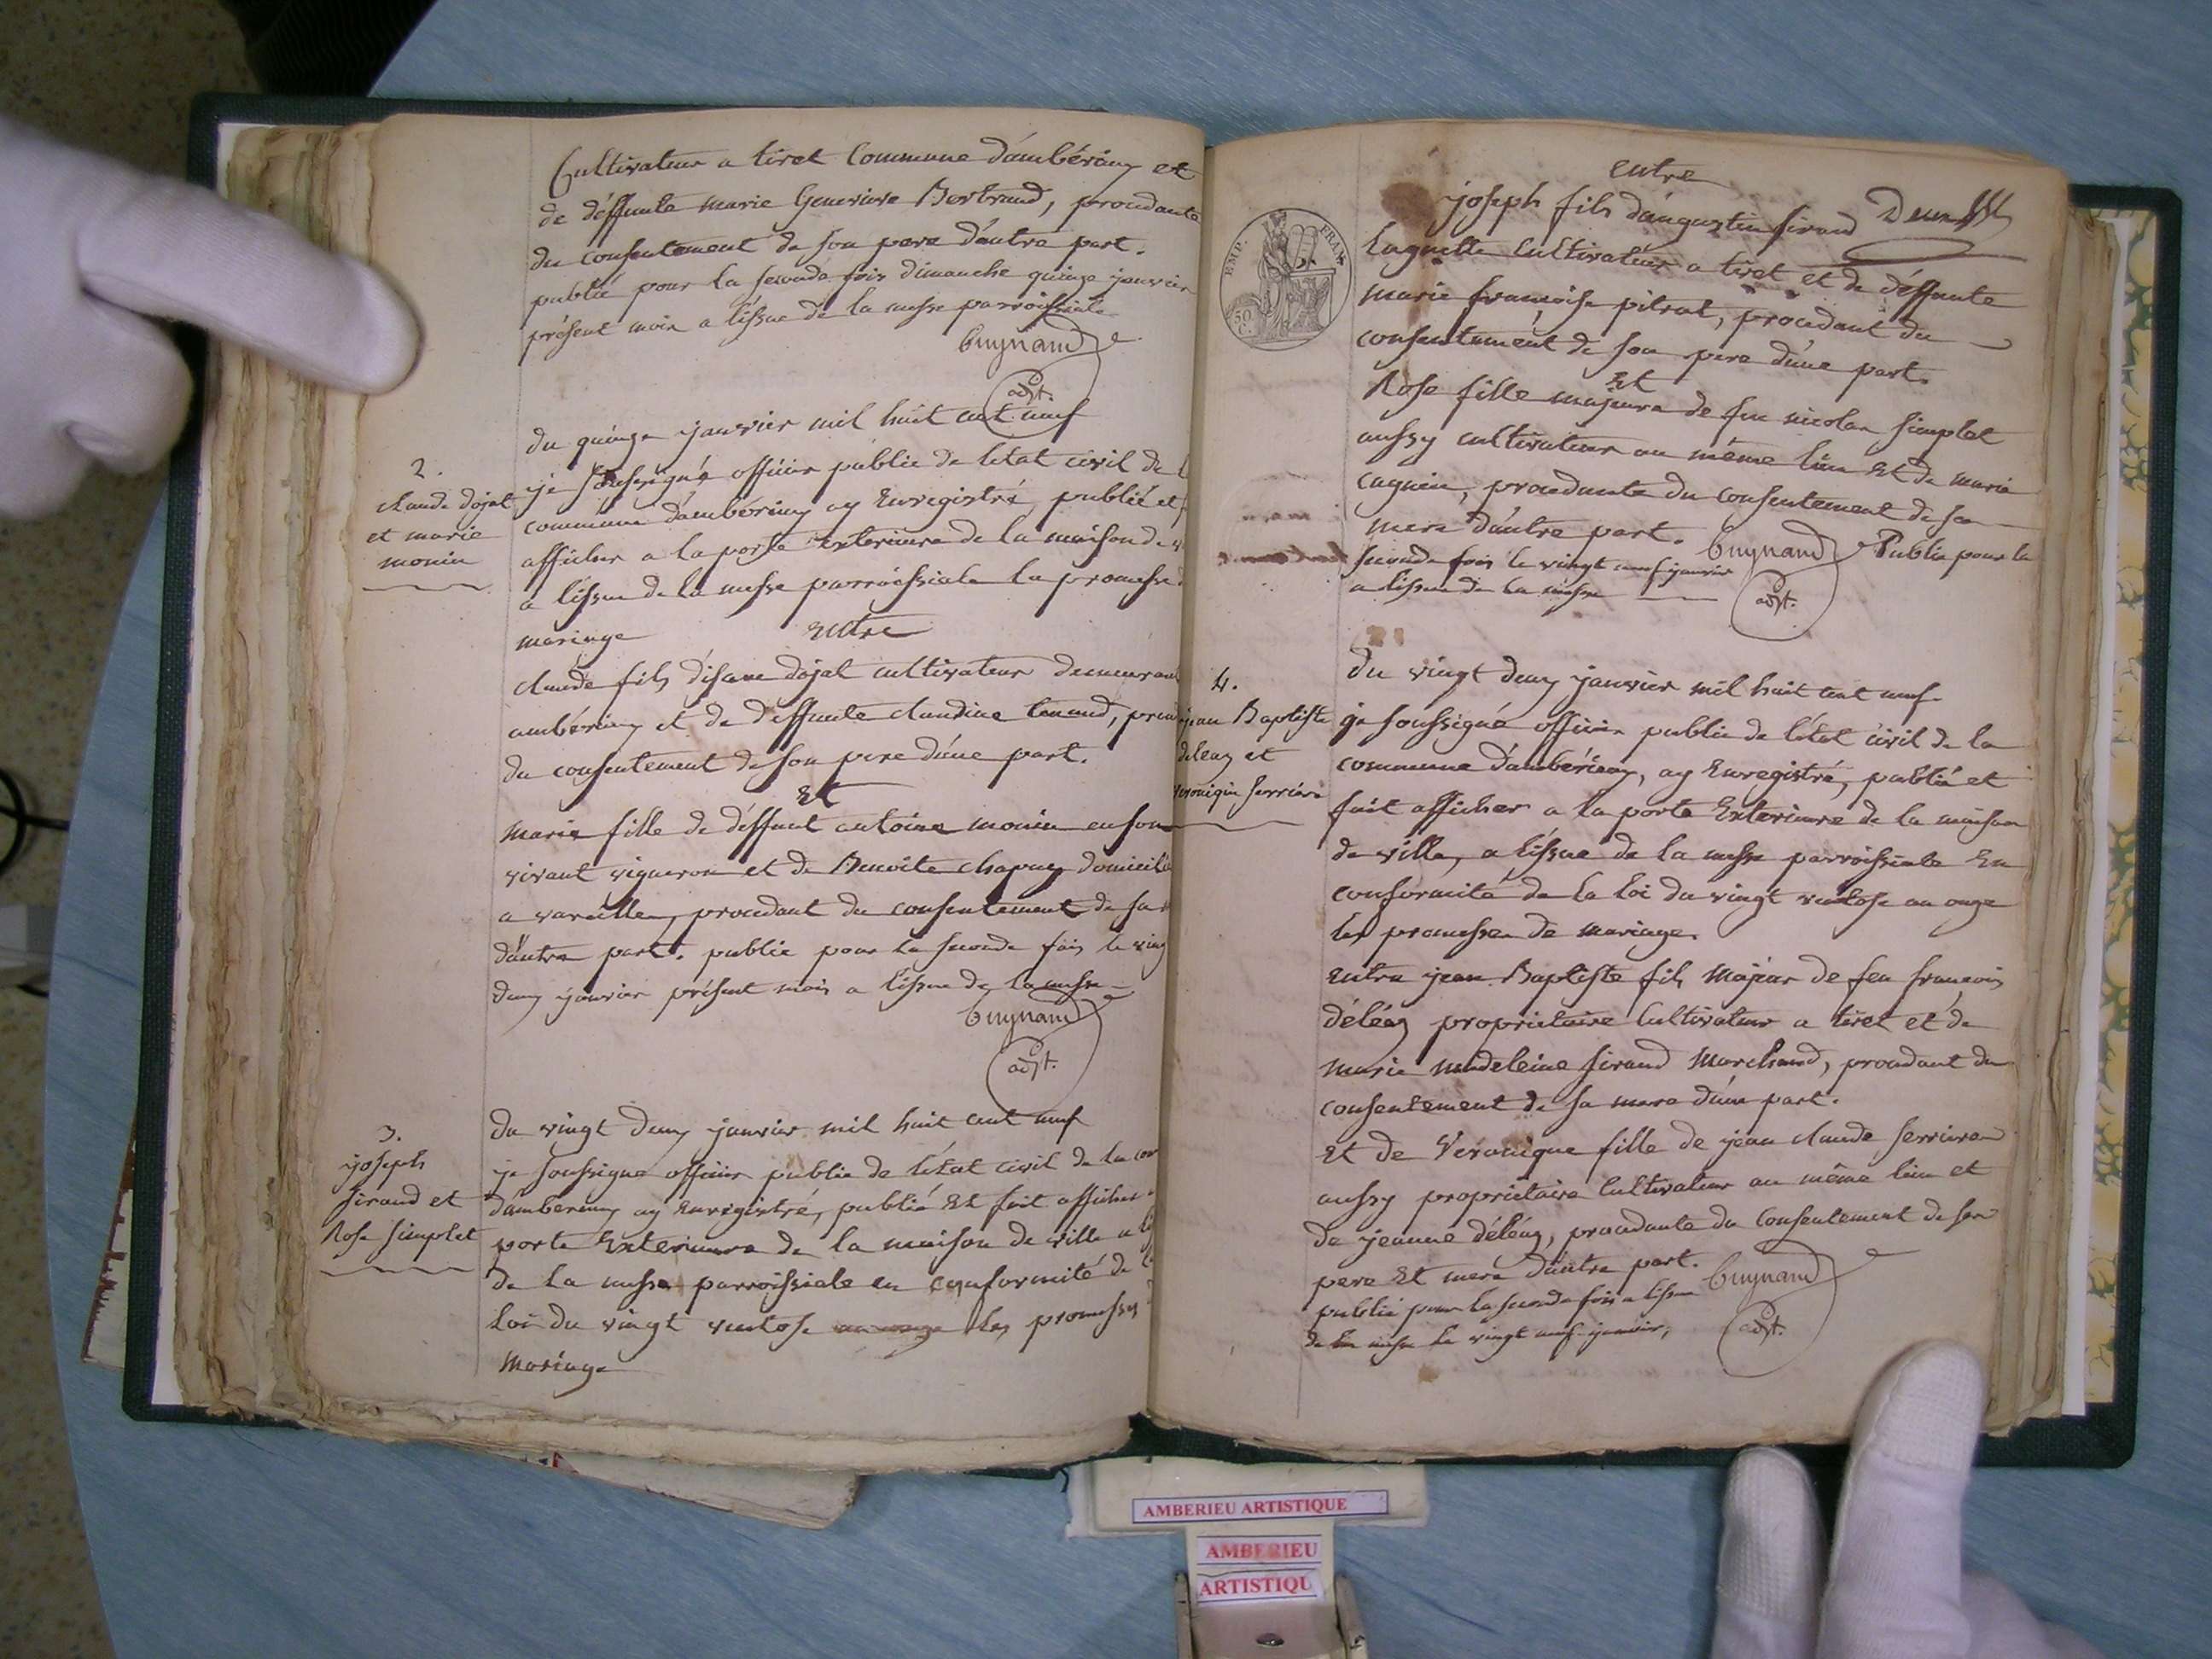 Cultivateur a tiret Commune d'ambérieux et
de déffunte marie Genevieve Bertrand, procedante
du consentement de son pere d'autre part.
publié pour la seconde fois dimanche quinze janvier
présent mois a l'issue de la messe parroissiale
Cuynand
adjt.
du quinze janvier mil huit cent neuf
2.
claude dojat
et marie
monin
je soussigné officier public de letat civil de l
commune d'ambérieux ay Enregistré, publié et f
afficher a la porte exterieure de la maison de v
a l'issue de la messe parroissiale la promesse d
mariage entre
claude fils d'isaac dojat cultivateur demeurant
ambérieux et de deffunte claudine tenand, proced
du consentement de son pere d'une part.
Et
marie fille de déffunt antoine monin en son
vivant vigneron et de Benoite chapuy domicilié
a vareilles, procedant du consentement de sa
d'autre part. publié pour la seconde fois le ving
deux janvier présent mois a l'issue de la messe
Cuynand
adjt.
3.
joseph
sirand et
Rose simplet
du vingt deux janvier mil huit cent neuf
je soussigné officier public de l'état civil de la com
d'amberieux ay enregistré, publié Et fait afficher a
porte Exterieure de la maison de ville a l'is
de la messe parroissiale en conformité de l
loi du vingt ventose les promesses
mariage
entre
joseph fils d'augustin sirand
Laguette Cultivateur a tiret et de déffunte
marie françoise pitrat, procedant du
consentement de son pere d'une part.
Et
Rose fille majeure de feu nicolas simplet
aussy cultivateur au même lieu Et de marie
cagnin, procedante du consentement de sa
mere d'autre part. Cuynand Publié pour la
seconde fois le vingt neuf janvier
a l'issue de la messe
adjt.
EMP. FRAN.
50
C.
du vingt deux janvier mil huit cent neuf
4.
jean Baptiste
déléaz et
veronique serriere
je soussigné officier public de l'état civil de la
commune d'ambérieux, ay Enregistré, publié et
fait afficher a la porte Exterieure de la maison
de ville, a l'issue de la messe parroissiale En
conformité de la loi du vingt ventose an onze
les promesses de mariage.
entre jean Baptiste fils majeur de feu françois
déléaz proprietaire Cultivateur a tiret et de
marie madeleine sirand Marchand, procedant du
consentement de sa mere d'une part.
Et de Veronique fille de jean claude serriere
aussy proprietaire Cultivateur au même lieu et
de jeanne déléaz, procedante du Consentement de ses
pere Et mere d'autre part. Cuynand
publié pour la seconde fois a l'issue
de la messe le vingt neuf janvier,
adjt.
AMBERIEU ARTISTIQUE
AMBERIEU
ARTISTIQU